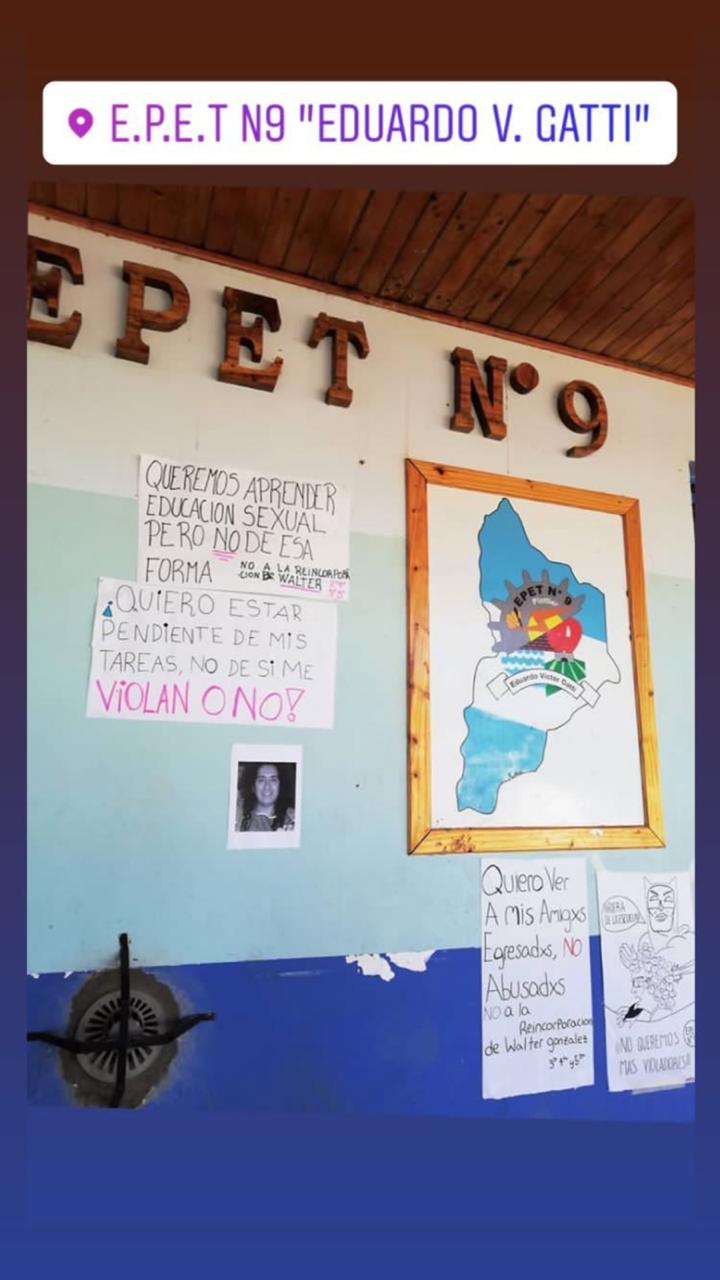 E.P.E.T N9 "EDUARDO V. GATTI"
EPET Nº 9
QUEREMOS APRENDER
EDUCACION SEXUAL
PERO NO DE ESA
FORMA
NO A LA REINCORPORA
CION DE WALTER
¡QUIERO ESTAR
PENDIENTE DE MIS
TAREAS, NO DE SI ME
VIOLAN O NO!
EPET Nº 9
Plottier
Eduardo Victor Gatti
Quiero Ver
A mis Amigxs
Egresadxs, NO
Abusadxs
NO a la
Reincorporacion
de Walter gonzalez
3º 4º y 5º
¡¡NO QUEREMOS
MAS VIOLADORES!!